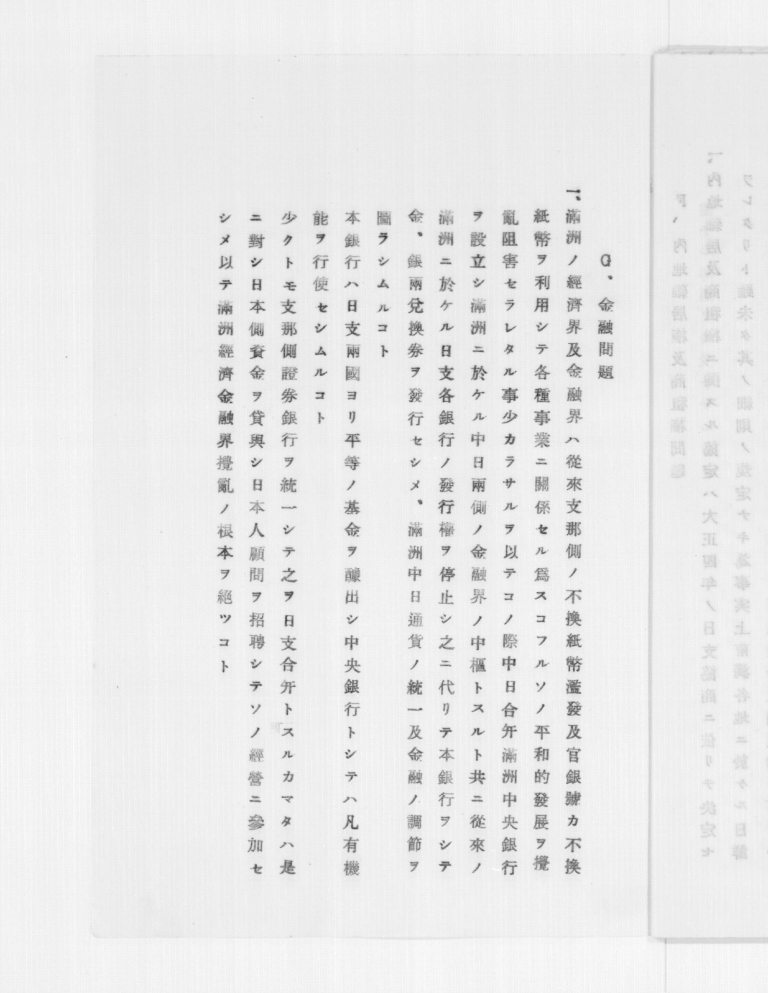 G、金融問題
一、滿洲ノ經濟界及金融界ハ從來支那側ノ不換紙幣濫發及官銀號カ不換
紙幣ヲ利用シテ各種事業ニ關係セル爲スコフルソノ平和的發展ヲ攪
亂阻害セラレタル事少カラサルヲ以テコノ際中日合弁滿洲中央銀行
ヲ設立シ滿洲ニ於ケル中日兩側ノ金融界ノ中樞トスルト共ニ從來ノ
滿洲ニ於ケル日支各銀行ノ發行權ヲ停止シ之ニ代リテ本銀行ヲシテ
金、銀兩兌換券ヲ發行セシメ、滿洲中日通貨ノ統一及金融ノ調節ヲ
圖ラシムルコト
本銀行ハ日支兩國ヨリ平等ノ基金ヲ醵出シ中央銀行トシテハ凡有機
能ヲ行使セシムルコト
少クトモ支那側證券銀行ヲ統一シテ之ヲ日支合弁トスルカマタハ是
ニ對シ日本側資金ヲ貸與シ日本人顧問ヲ招聘シテソノ經營ニ參加セ
シメ以テ滿洲經濟金融界攪亂ノ根本ヲ絶ツコト